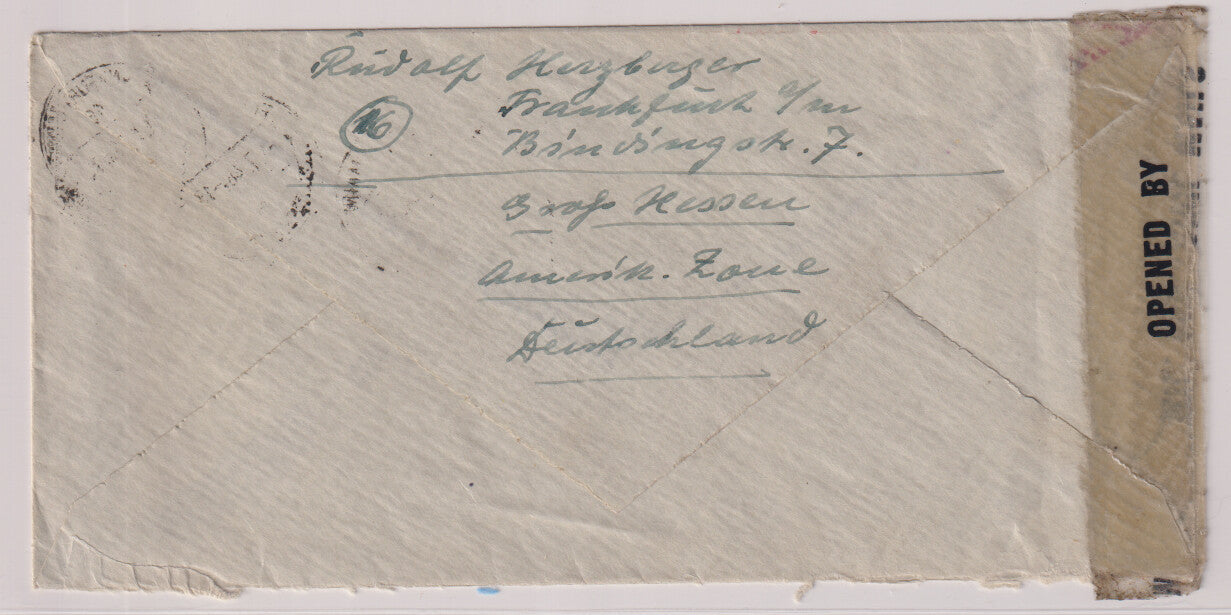 Rudolf Herzberger
16 Frankfurt a/m
Bindingstr. 7.
Groß Hessen
Amerik. Zone
Deutschland
OPENED BY